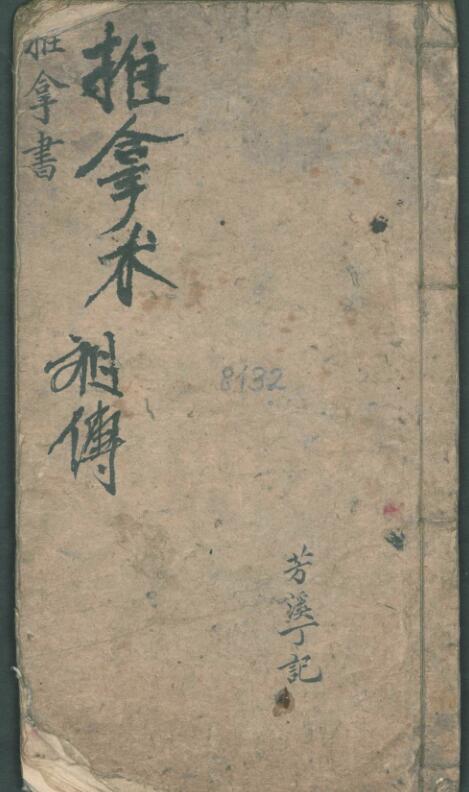 推拿書
推拿术
祖傳
8132
芳溪丁記